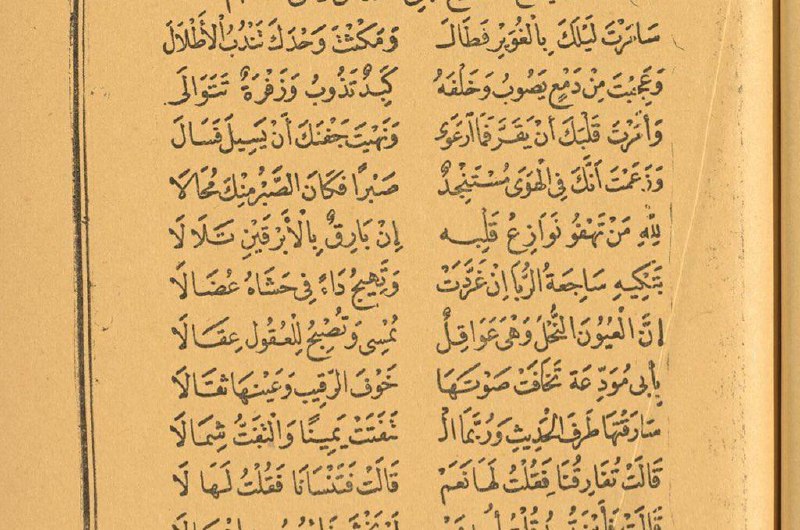 سَايَرْتَ لَيْلَكَ بِالْغُوَيْرِ فَطَالَ وَمَكَثْتَ وَحْدَكَ تَنْدُبُ الْأَطْلَالَ
وَعَجِبْتَ مِنْ دَمْعٍ يَصُوبُ وَخَلْفَهُ كَبِدٌ تَذُوبُ وَزَفْرَةٌ تَتَوَالَى
وَأَمَرْتَ قَلْبَكَ أَنْ يَقَرَّ فَمَا ارْعَوَى وَنَهَيْتَ جَفْنَكَ أَنْ يَسِيلَ فَسَالَ
وَزَعَمْتَ أَنَّكَ فِي الْهَوَى مُسْتَنْجِدٌ صَبْرًا فَكَانَ الصَّبْرُ مِنْكَ مُحَالَا
لِلّٰهِ مَنْ تَهْفُو نَوَازِعُ قَلْبِهِ إِنْ بَارِقٌ بِالْأَبْرَقَيْنِ تَلَالَا
تَبْكِيهِ سَاجِعَةُ الرُّبَا إِنْ غَرَّدَتْ وَتُهِيجُ دَاءً فِي حَشَاهُ عُضَالَا
إِنَّ الْعُيُونَ النُّجْلَ وَهْيَ عَوَاقِلٌ تُمْسِي وَتُصْبِحُ لِلْعُقُولِ عِقَالَا
بِأَبِي مُوَدِّعَةً تَخَافَتَ صَوْتُهَا خَوْفَ الرَّقِيبِ وَعَيْنِهَا ثِقَالَا
سَارَقْتُهَا طَرَفَ الْحَدِيثِ وَرُبَّمَا الْـ ـتَفَتَتْ يَمِينًا وَالْتَفَتُّ شِمَالَا
قَالَتْ تُفَارِقُنَا فَقُلْتُ لَهَا نَعَمْ قَالَتْ فَتَنْسَانَا فَقُلْتُ لَهَا لَا